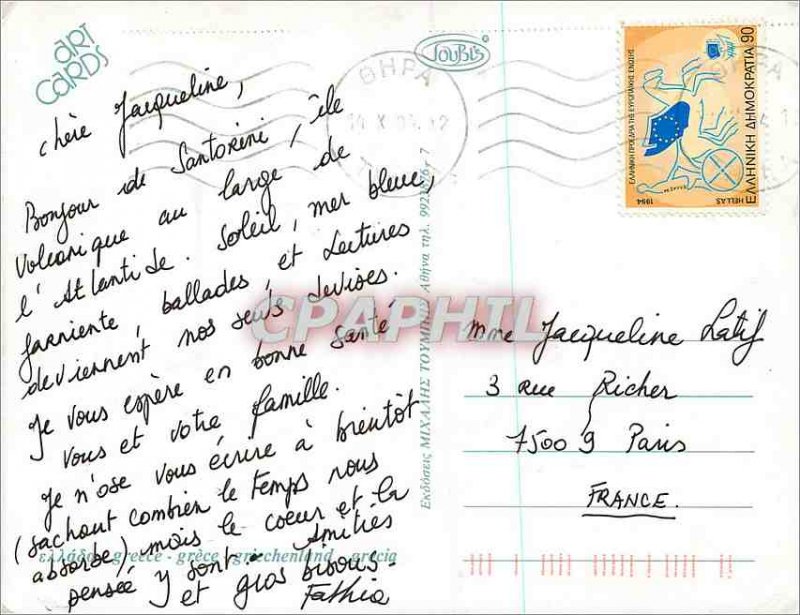 ART
CARDS
TOUBI'S
ΘΗΡΑ
chère Jacqueline,
Bonjour de Santorini, île
volcanique au large de
l'Atlantide. Soleil, mer bleue,
farniente, ballades, et lectures
deviennent nos seuls devises.
Je vous espère en bonne santé
vous et votre famille.
Je n'ose vous écrire à bientôt
(sachant combien le temps nous
absorbe) mais le coeur et la
pensée y sont. Amitiés
et gros bisous-
Fathia
ελλάδα - greece - grèce - griechenland - grecia
Εκδόσεις ΜΙΧΑΛΗΣ ΤΟΥΜΠΗΣ Αθήνα τηλ.
ΕΛΛΗΝΙΚΗ ΠΡΟΕΔΡΙΑ ΤΗΣ ΕΥΡΩΠΑΪΚΗΣ ΕΝΩΣΗΣ
ΕΛΛΗΝΙΚΗ ΔΗΜΟΚΡΑΤΙΑ 90
1994 HELLAS
CPAPHIL
Mme Jacqueline Latif
3 rue Richer
75009 Paris
FRANCE.